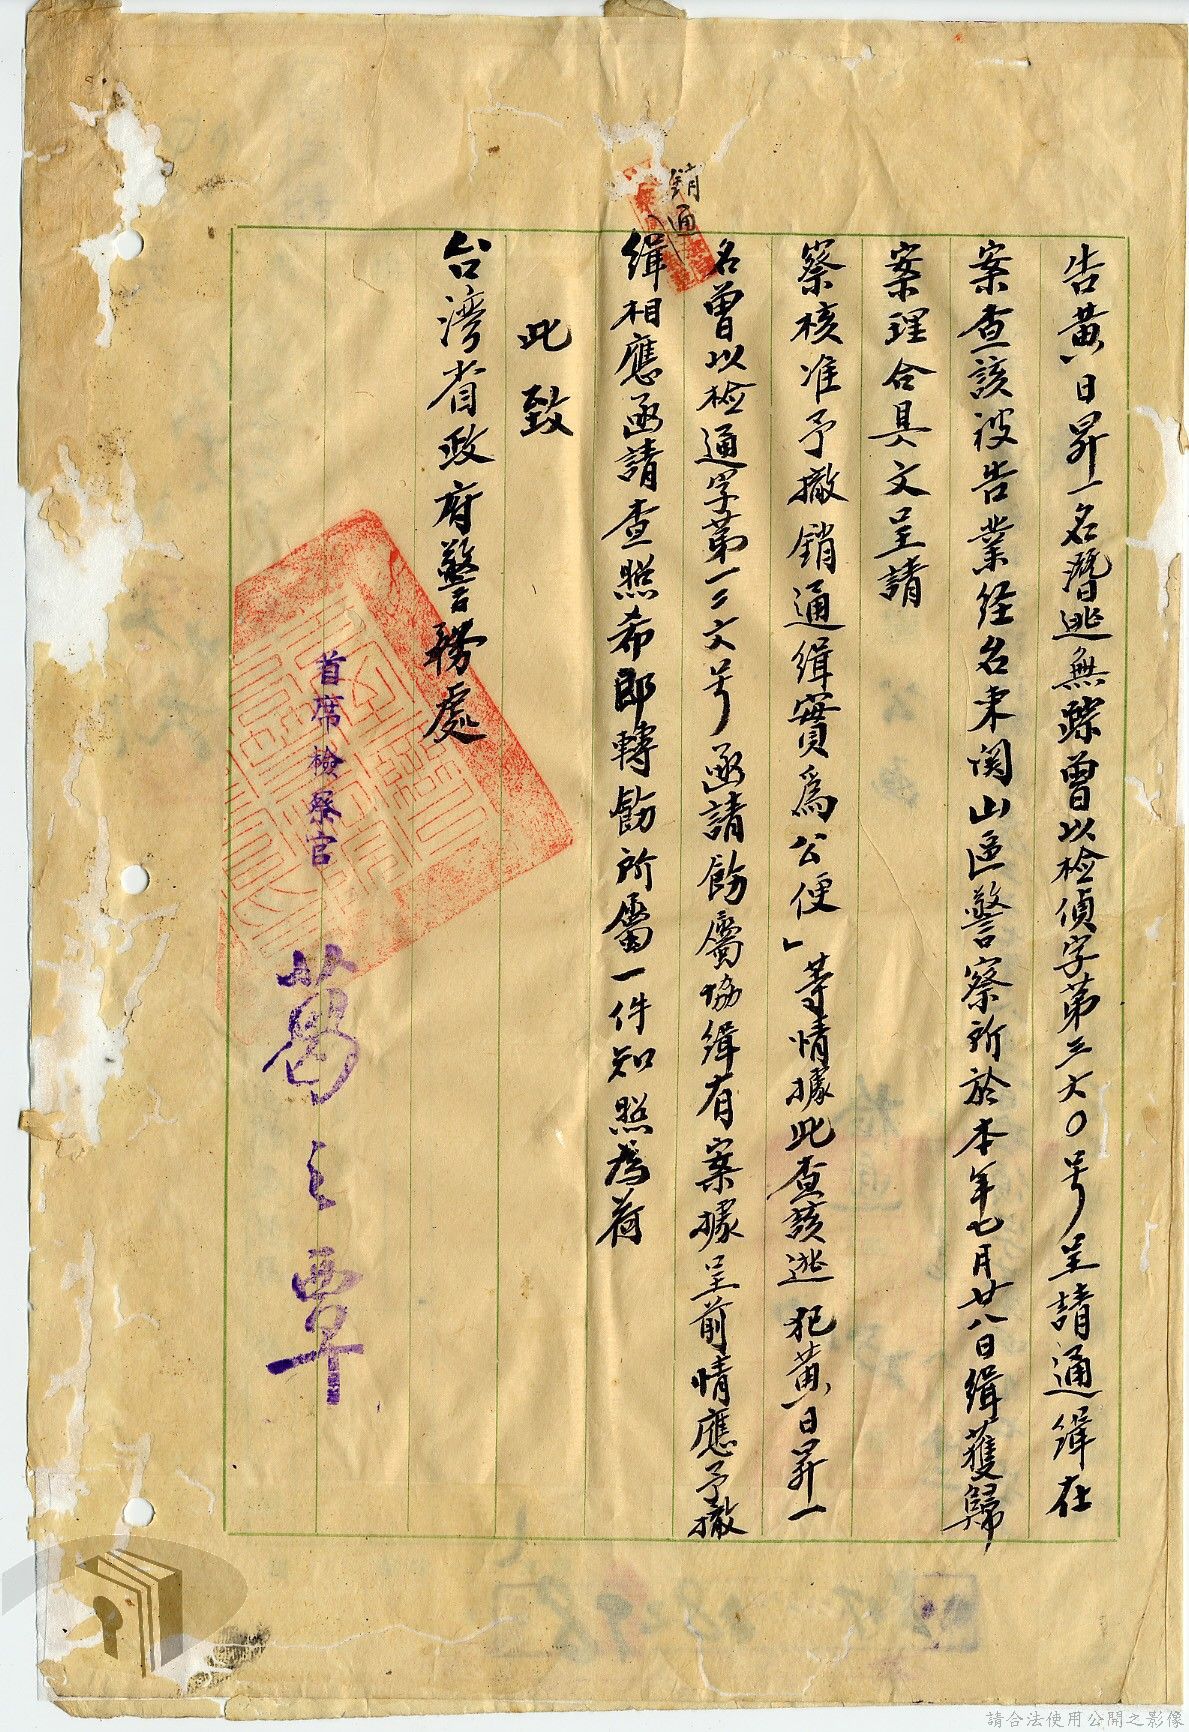 告黃日昇一名潛逃無踪曾以檢偵字第三六〇号呈請通緝在
案查該被告業经名東関山區警察所於本年七月廿八日缉獲歸
案理合具文呈請
察核准予撤銷通缉實為公便」等情據此查該逃犯黃日昇一
名曾以檢通字第一二六号函請飭屬協缉有案據呈前情應予撤
銷通
缉相應函請查照希即轉飭所屬一件知照為荷
此致
台湾省政府警務處
首席檢察官
葛之覃
請合法使用公開之影像